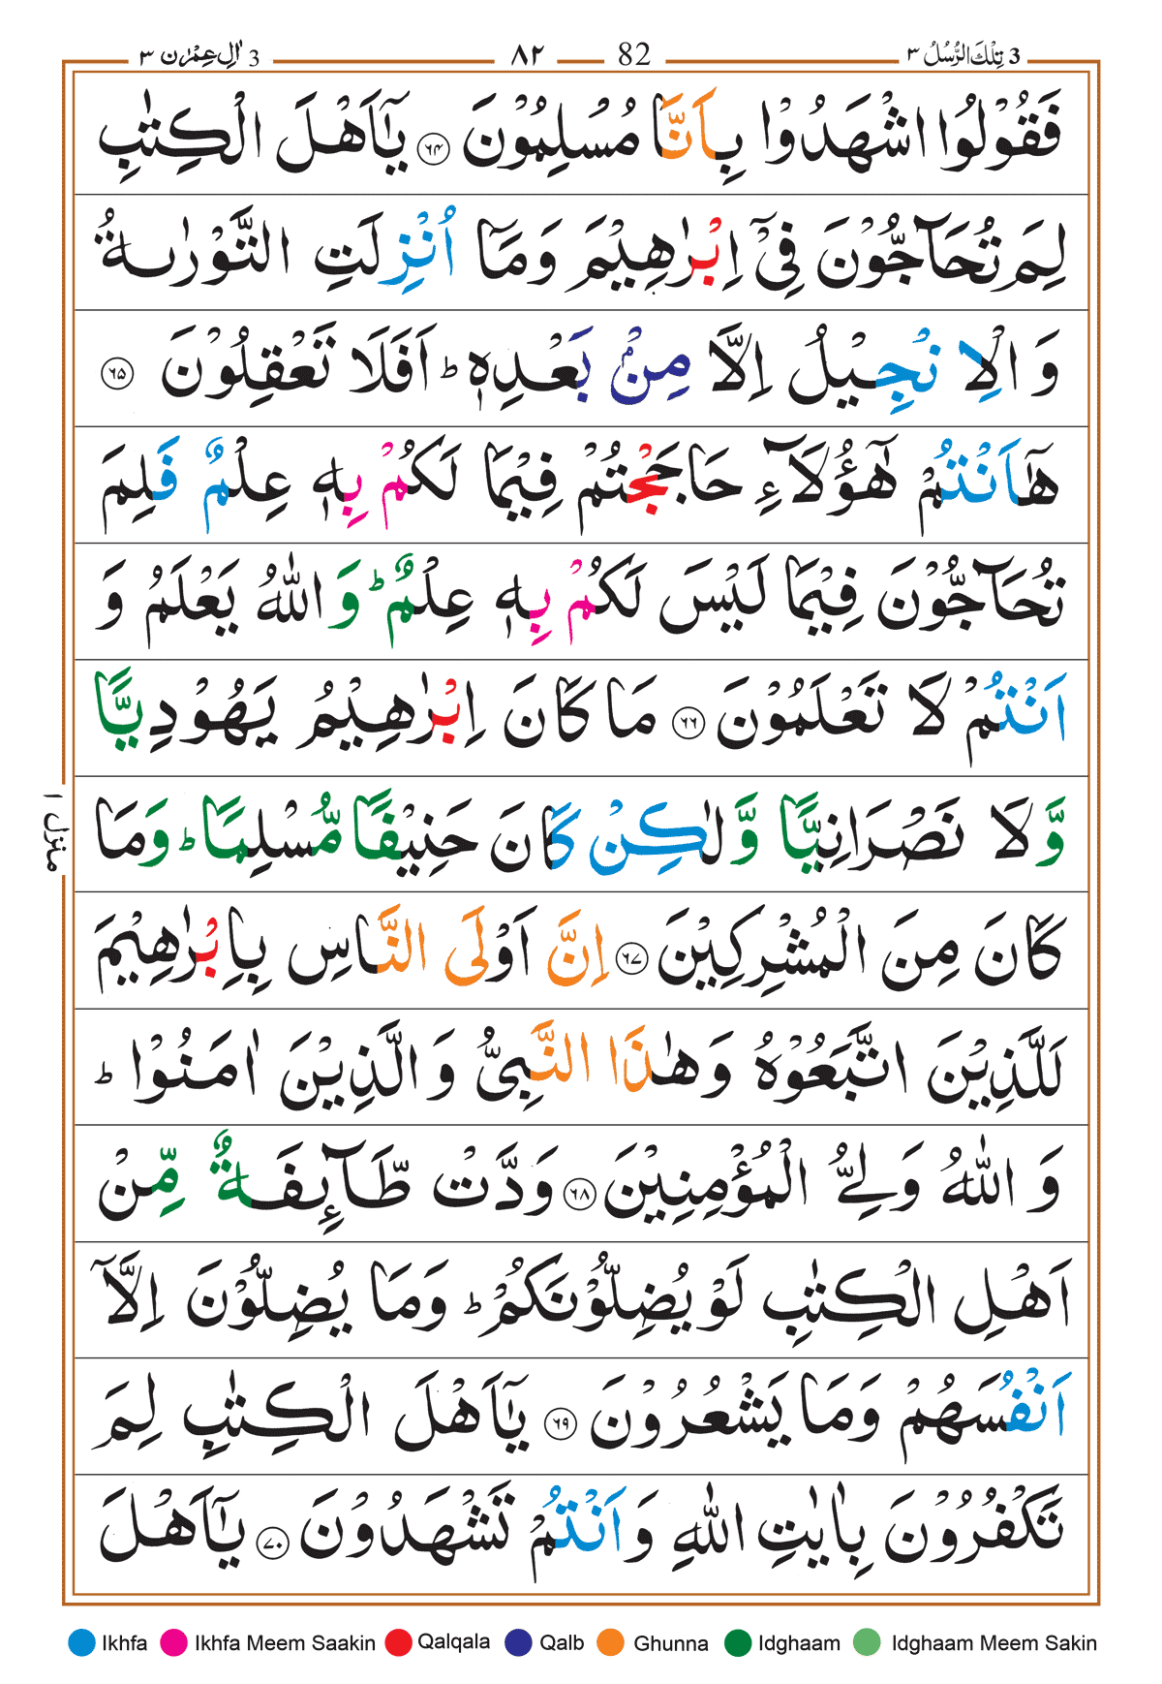 3 تِلْكَ الرُّسُلُ ٣ 82 ٨٢ 3 اٰلِ عِمْرٰن ٣
فَقُوْلُوا اشْهَدُوْا بِاَنَّا مُسْلِمُوْنَ ﴿۶۴﴾ يٰۤاَهْلَ الْكِتٰبِ
لِمَ تُحَآجُّوْنَ فِىْۤ اِبْرٰهِيْمَ وَمَاۤ اُنْزِلَتِ التَّوْرٰىةُ
وَ الْاِنْجِيْلُ اِلَّا مِنْۢ بَعْدِهٖ ؕ اَفَلَا تَعْقِلُوْنَ ﴿۶۵﴾
هٰۤاَنْتُمْ هٰٓؤُلَآءِ حَاجَجْتُمْ فِيْمَا لَكُمْ بِهٖ عِلْمٌ فَلِمَ
تُحَآجُّوْنَ فِيْمَا لَيْسَ لَكُمْ بِهٖ عِلْمٌ ؕ وَ اللّٰهُ يَعْلَمُ وَ
اَنْتُمْ لَا تَعْلَمُوْنَ ﴿۶۶﴾ مَا كَانَ اِبْرٰهِيْمُ يَهُوْدِيًّا
وَّ لَا نَصْرَانِيًّا وَّ لٰكِنْ كَانَ حَنِيْفًا مُّسْلِمًا ؕ وَمَا
كَانَ مِنَ الْمُشْرِكِيْنَ ﴿۶۷﴾ اِنَّ اَوْلَى النَّاسِ بِاِبْرٰهِيْمَ
لَلَّذِيْنَ اتَّبَعُوْهُ وَهٰذَا النَّبِىُّ وَ الَّذِيْنَ اٰمَنُوْا ؕ
وَ اللّٰهُ وَلِىُّ الْمُؤْمِنِيْنَ ﴿۶۸﴾ وَدَّتْ طَّآئِفَةٌ مِّنْ
اَهْلِ الْكِتٰبِ لَوْ يُضِلُّوْنَكُمْ ؕ وَمَا يُضِلُّوْنَ اِلَّاۤ
اَنْفُسَهُمْ وَمَا يَشْعُرُوْنَ ﴿۶۹﴾ يٰۤاَهْلَ الْكِتٰبِ لِمَ
تَكْفُرُوْنَ بِاٰيٰتِ اللّٰهِ وَ اَنْتُمْ تَشْهَدُوْنَ ﴿۷۰﴾ يٰۤاَهْلَ
منزل ١
Ikhfa Ikhfa Meem Saakin Qalqala Qalb Ghunna Idghaam Idghaam Meem Sakin